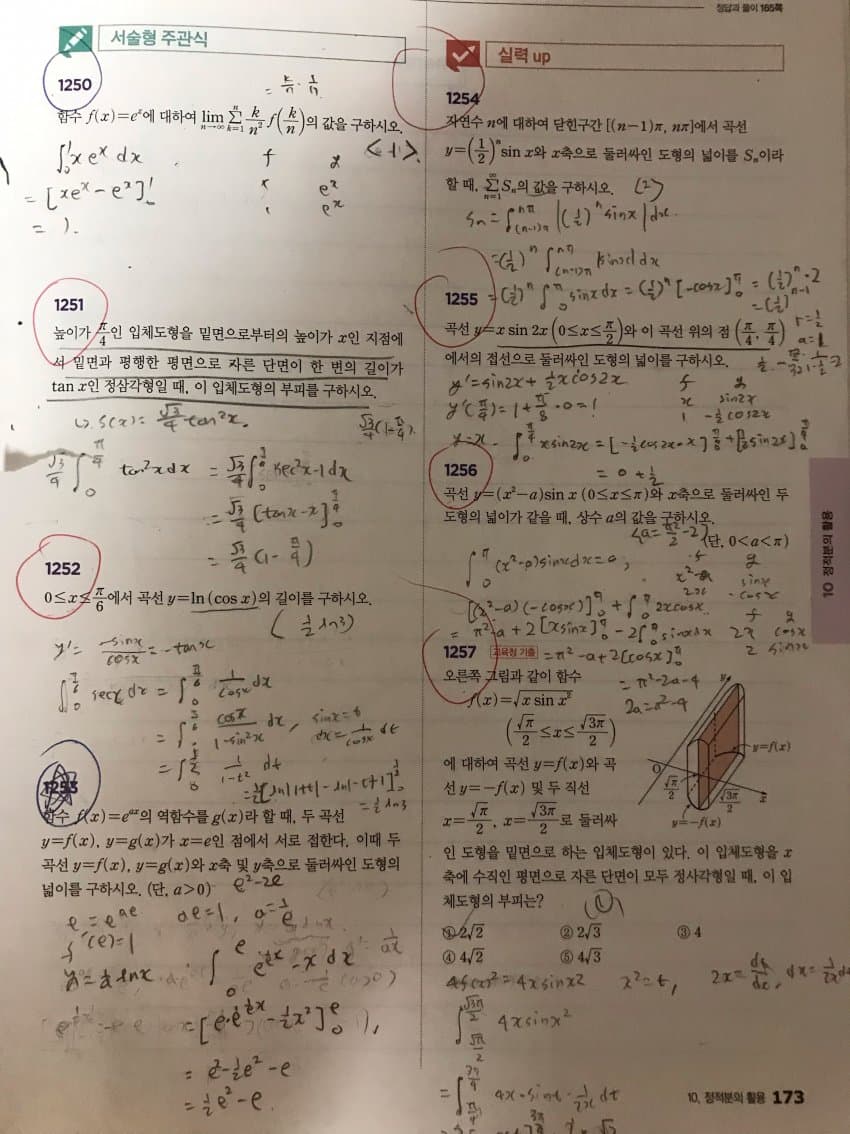 정답과 풀이 165쪽
서술형 주관식
1250
= k/n · 1/n
함수 f(x)=eˣ에 대하여 lim n→∞ Σ k=1 n k/n² f(k/n)의 값을 구하시오.
∫₀¹ x eˣ dx
<1>
= [xeˣ - eˣ]₀¹
= 1.
1251
높이가 π/4인 입체도형을 밑면으로부터의 높이가 x인 지점에
서 밑면과 평행한 평면으로 자른 단면이 한 변의 길이가
tan x인 정삼각형일 때, 이 입체도형의 부피를 구하시오.
S(x) = √3/4 tan²x.
√3/4(1-π/4)
√3/4 ∫₀^(π/4) tan²x dx = √3/4 ∫₀^(π/4) sec²x-1 dx
= √3/4 [tanx-x]₀^(π/4)
= √3/4 (1-π/4)
1252
0≤x≤π/6에서 곡선 y=ln (cos x)의 길이를 구하시오.
(½ ln3)
y' = -sinx/cosx = -tanx
∫₀^(π/6) secx dx = ∫₀^(π/6) 1/cosx dx
= ∫₀^(π/6) cosx/(1-sin²x) dx, sinx=t dx = 1/cosx dt
= ∫₀^(1/2) 1/(1-t²) dt
= ½ ln3
1253
함수 f(x)=e^(ax)의 역함수를 g(x)라 할 때, 두 곡선
y=f(x), y=g(x)가 x=e인 점에서 서로 접한다. 이때 두
곡선 y=f(x), y=g(x)와 x축 및 y축으로 둘러싸인 도형의
넓이를 구하시오. (단, a>0)
e²-2e
e = e^(ae) ae=1, a=1/e
f'(e)=1
y = 1/a lnx
∫₀^e e^(1/e x) - x dx
= [e·e^(1/e x) - ½x²]₀^e
= e²-½e²-e
= ½e²-e.
실력 up
1254
자연수 n에 대하여 닫힌구간 [(n-1)π, nπ]에서 곡선
y=(1/2)ⁿ sin x와 x축으로 둘러싸인 도형의 넓이를 Sₙ이라
할 때, Σ n=1 ∞ Sₙ의 값을 구하시오.
(2)
Sn = ∫_((n-1)π)^(nπ) |(½)ⁿ sinx| dx.
= (½)ⁿ ∫_((n-1)π)^(nπ) |sinx| dx
= (½)ⁿ ∫₀^π sinx dx = (½)ⁿ [-cosx]₀^π = (½)ⁿ·2
= (½)ⁿ⁻¹
r=½
a=1
1255
곡선 y=x sin 2x (0≤x≤π/2)와 이 곡선 위의 점 (π/4, π/4)
에서의 접선으로 둘러싸인 도형의 넓이를 구하시오.
y'(π/4) = 1+π/8·0=1
y=x
= 0 + ½
1256
곡선 y=(x²-a)sin x (0≤x≤π)와 x축으로 둘러싸인 두
도형의 넓이가 같을 때, 상수 a의 값을 구하시오.
(단, 0<a<π)
∫₀^π (x²-a)sinx dx=0,
[(x²-a)(-cosx)]₀^π + ∫₀^π 2xcosx
= π²-a+2[xsinx]₀^π - 2∫₀^π sinx dx
= π²-a+2[cosx]₀^π
= π²-2a-4
2a=π²-4
1257 교육청 기출
오른쪽 그림과 같이 함수
f(x)=√(x sin x²)
(√π/2≤x≤√(3π)/2)
에 대하여 곡선 y=f(x)와 곡
선 y=-f(x) 및 두 직선
x=√π/2, x=√(3π)/2로 둘러싸
인 도형을 밑면으로 하는 입체도형이 있다. 이 입체도형을 x
축에 수직인 평면으로 자른 단면이 모두 정사각형일 때, 이 입
체도형의 부피는?
y
y=f(x)
O
√π/2
√(3π)/2
x
y=-f(x)
① 2√2 ② 2√3 ③ 4
④ 4√2 ⑤ 4√3
4f(x)² = 4x sinx² x²=t, 2x = dt/dx, dx = 1/2x dt
∫ 4x sinx²
= ∫ 4x·sint·1/2x dt
10 정적분의 활용
10. 정적분의 활용 173